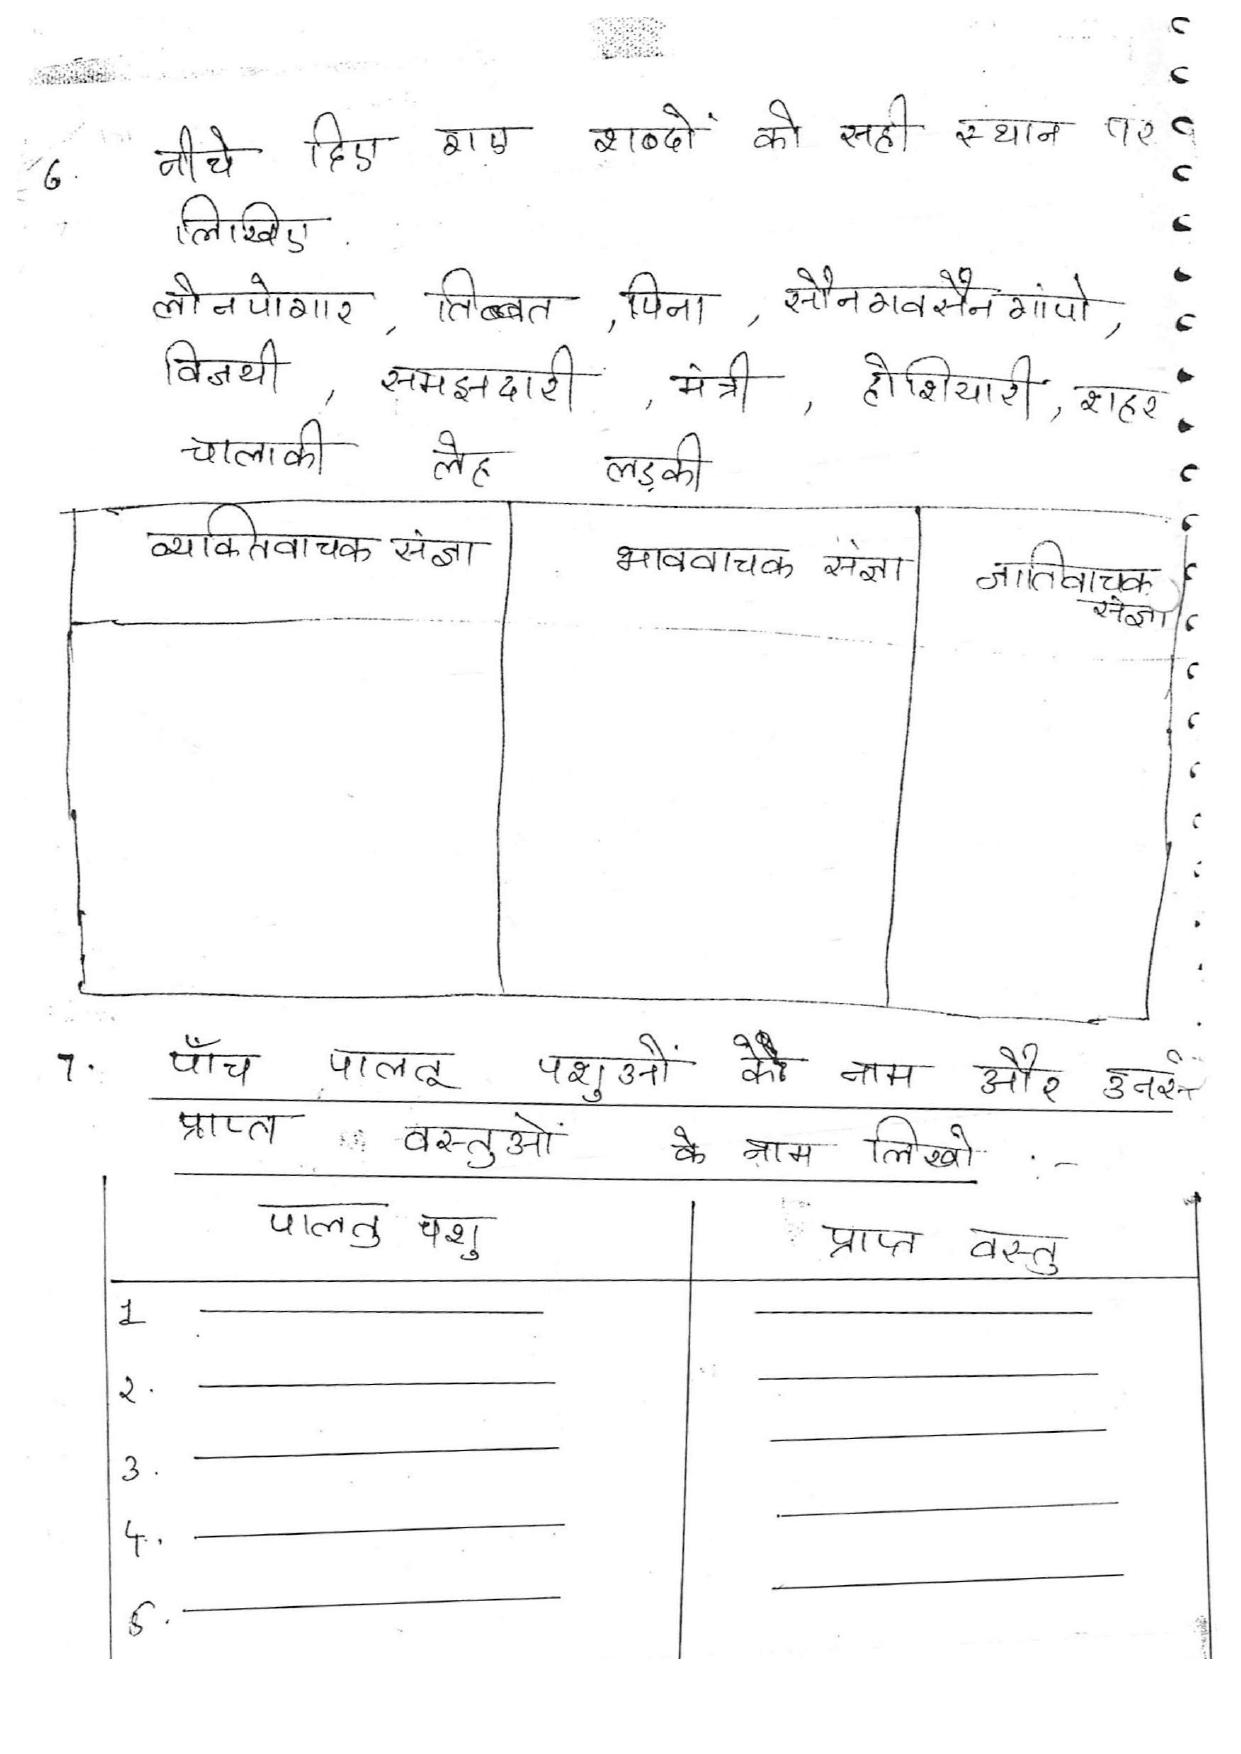 6. नीचे दिए गए शब्दों को सही स्थान पर
लिखिए.
लौनपोगार, तिब्बत, पिना, सौनगवसैनगांपो,
विजयी, समझदारी, मंत्री, होशियारी, शहर
चालाकी लेह लड़की
व्यक्तिवाचक संज्ञा भाववाचक संज्ञा जातिवाचक
संज्ञा
7. पाँच पालतू पशुओं के नाम और उनसे
प्राप्त वस्तुओं के नाम लिखो :-
पालतु पशु प्राप्त वस्तु
1
2.
3.
4.
5.